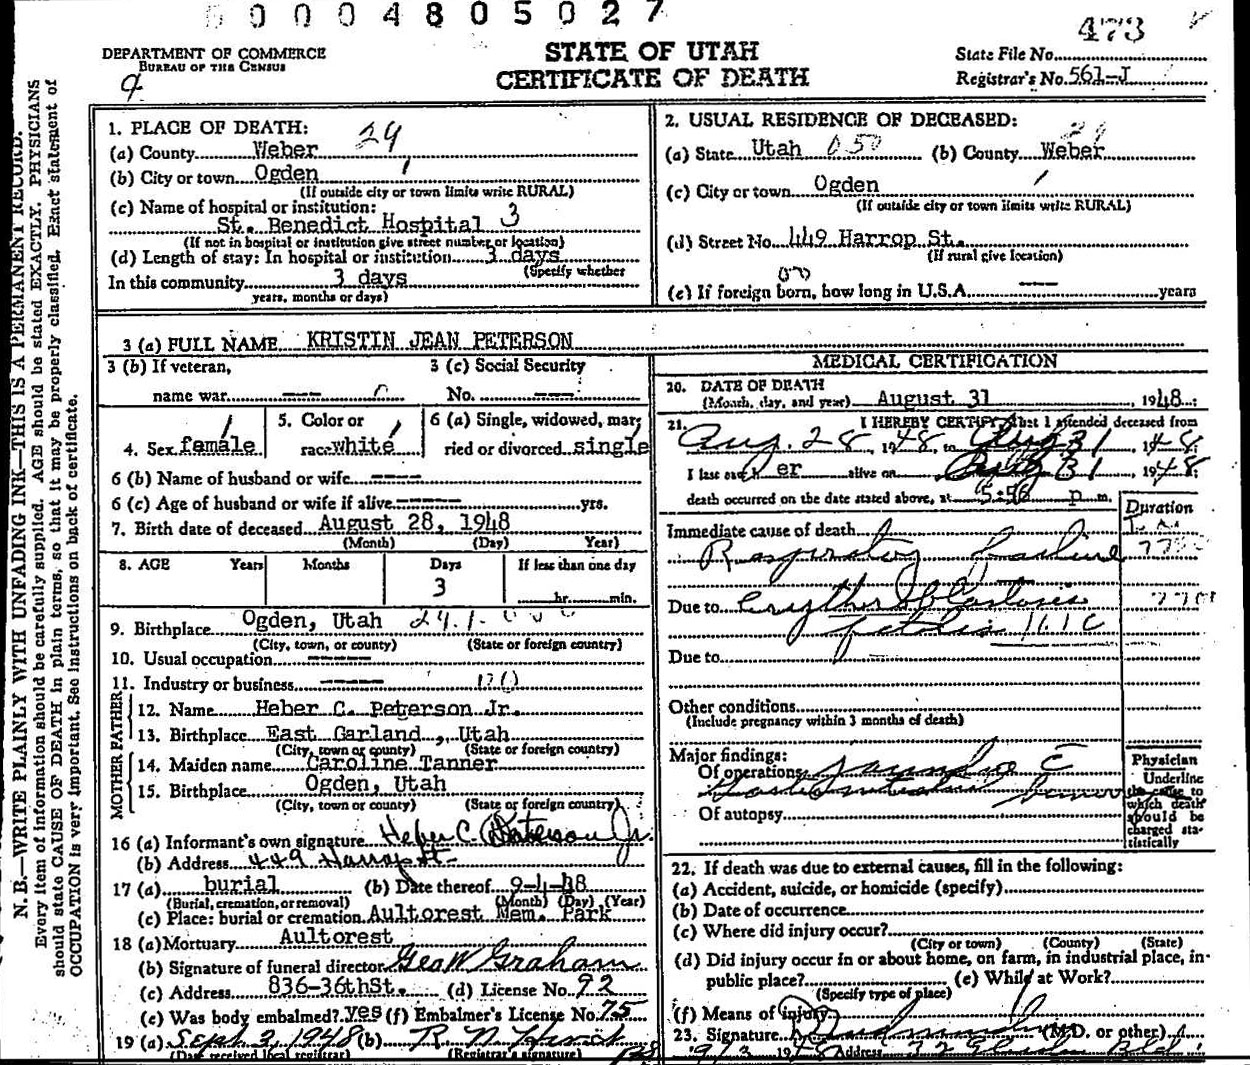 0 0 0 4 8 0 5 0 2 7
473
DEPARTMENT OF COMMERCE
BUREAU OF THE CENSUS
STATE OF UTAH
CERTIFICATE OF DEATH
State File No.
Registrar's No. 561-J
N. B.—WRITE PLAINLY WITH UNFADING INK—THIS IS A PERMANENT RECORD.
Every item of information should be carefully supplied. AGE should be stated EXACTLY. PHYSICIANS
should state CAUSE OF DEATH in plain terms, so that it may be properly classified. Exact statement of
OCCUPATION is very important. See instructions on back of certificate.
1. PLACE OF DEATH: 29
(a) County Weber
(b) City or town Ogden
(If outside city or town limits write RURAL)
(c) Name of hospital or institution:
St. Benedict Hospital 3
(If not in hospital or institution give street number or location)
(d) Length of stay: In hospital or institution 3 days
(Specify whether
In this community 3 days
years, months or days)
2. USUAL RESIDENCE OF DECEASED:
(a) State Utah 050 (b) County Weber
(c) City or town Ogden
(If outside city or town limits write RURAL)
(d) Street No. 449 Harrop St.
(If rural give location)
(e) If foreign born, how long in U.S.A. --- years
3 (a) FULL NAME KRISTIN JEAN PETERSON
3 (b) If veteran,
name war ---
3 (c) Social Security
No. ---
4. Sex female
5. Color or
race white
6 (a) Single, widowed, mar-
ried or divorced single
6 (b) Name of husband or wife -----
6 (c) Age of husband or wife if alive ----- yrs.
7. Birth date of deceased August 28, 1948
(Month) (Day) Year)
8. AGE Years Months Days If less than one day
3 hr. min.
9. Birthplace Ogden, Utah
(City, town, or county) (State or foreign country)
10. Usual occupation -----
11. Industry or business -----
FATHER
12. Name Heber C. Peterson Jr.
13. Birthplace East Garland, Utah
(City, town or county) (State or foreign country)
MOTHER
14. Maiden name Caroline Tanner
15. Birthplace Ogden, Utah
(City, town or county) (State or foreign country)
16 (a) Informant's own signature Heber C. Peterson Jr.
(b) Address 449 Harrop St.
17 (a) burial (b) Date thereof 9-4-48
(Burial, cremation, or removal) (Month) (Day) (Year)
(c) Place: burial or cremation Aultorest Mem. Park
18 (a) Mortuary Aultorest
(b) Signature of funeral director Geo W Graham
(c) Address 836-36thSt. (d) License No. 92
(e) Was body embalmed? yes (f) Embalmer's License No. 75
19 (a) Sept. 3, 1948 (b) R. N.
(Date received local registrar) (Registrar's signature)
MEDICAL CERTIFICATION
20. DATE OF DEATH
(Month, day, and year) August 31, 1948
21. I HEREBY CERTIFY that I attended deceased from
Aug. 28, 1948, to Aug 31, 1948
I last saw h er alive on Aug 31, 1948
death occurred on the date stated above, at 5:56 p m.
Duration
Immediate cause of death
Respiratory failure
Due to Erythroblastosis
fetalis
Due to
Other conditions
(Include pregnancy within 3 months of death)
Major findings:
Of operations jaundice c
Of autopsy
Physician
Underline
the cause to
which death
should be
charged sta-
tistically
22. If death was due to external causes, fill in the following:
(a) Accident, suicide, or homicide (specify)
(b) Date of occurrence
(c) Where did injury occur?
(City or town) (County) (State)
(d) Did injury occur in or about home, on farm, in industrial place, in-
public place? (e) While at Work?
(Specify type of place)
(f) Means of injury
23. Signature (M.D. or other)
9/3 1948 Address